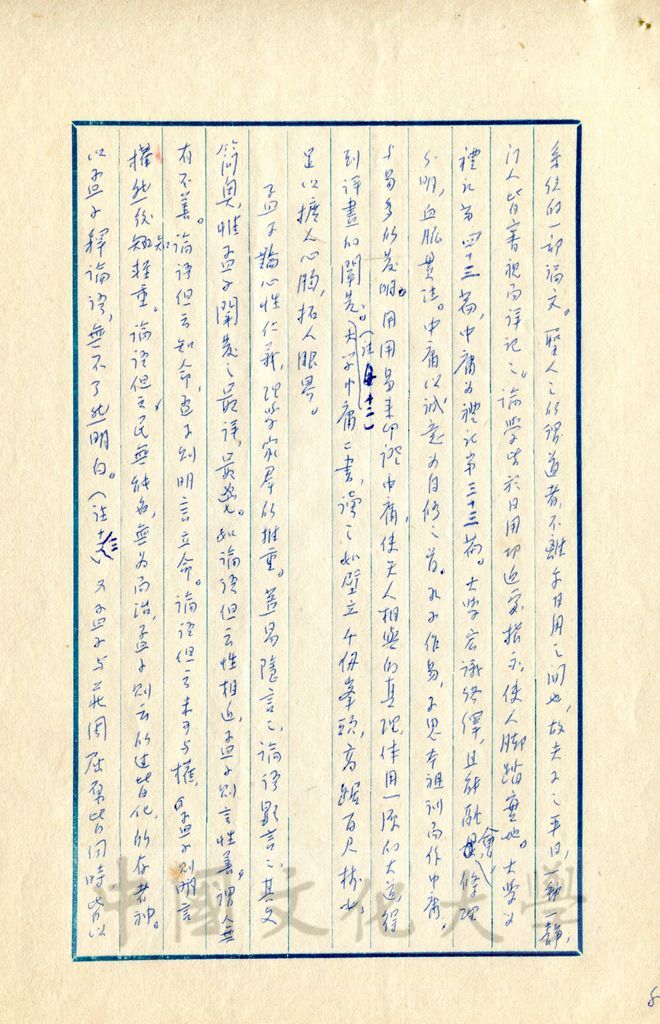 系統的一部論文。聖人之所謂道者，不離乎日用之間也，故夫子之平日，一動一靜，
門人皆審視而詳記之。論學皆於日用切近處指示，使人腳踏實地。大學為
禮記第四十三篇，中庸為禮記第三十三篇。大學言議絡繹，且能融會條理
分明，血脈貫注。中庸以誠意為自修之首。孔子作易，子思本祖訓而作中庸，
與易多所發明。用周易來印證中庸，使天人相與的真理，體用一源的大道，得
到詳盡的闡發。（註十二）大學中庸二書，讀之如壁立千仞峯頭，高踞百尺樓上，
足以擴人心胸，拓人眼界。
孟子論心性仁義，理學家羣所推重。蓋易隱言之，論語顯言之，其文
簡奧，惟孟子闡發之最詳，最鬯。如論語但云性相近，孟子則言性善。謂人無
有不善。論語但云知命，孟子則明言立命。論語但云未可與權，孟子則明言
權然後知輕重。論語但云民無能名，無為而治，孟子則云所過皆化，所存者神。
以孟子釋論語，無不了然明白。（註十三）又孟子與莊周屈原皆同時皆以
中國文化大學
8